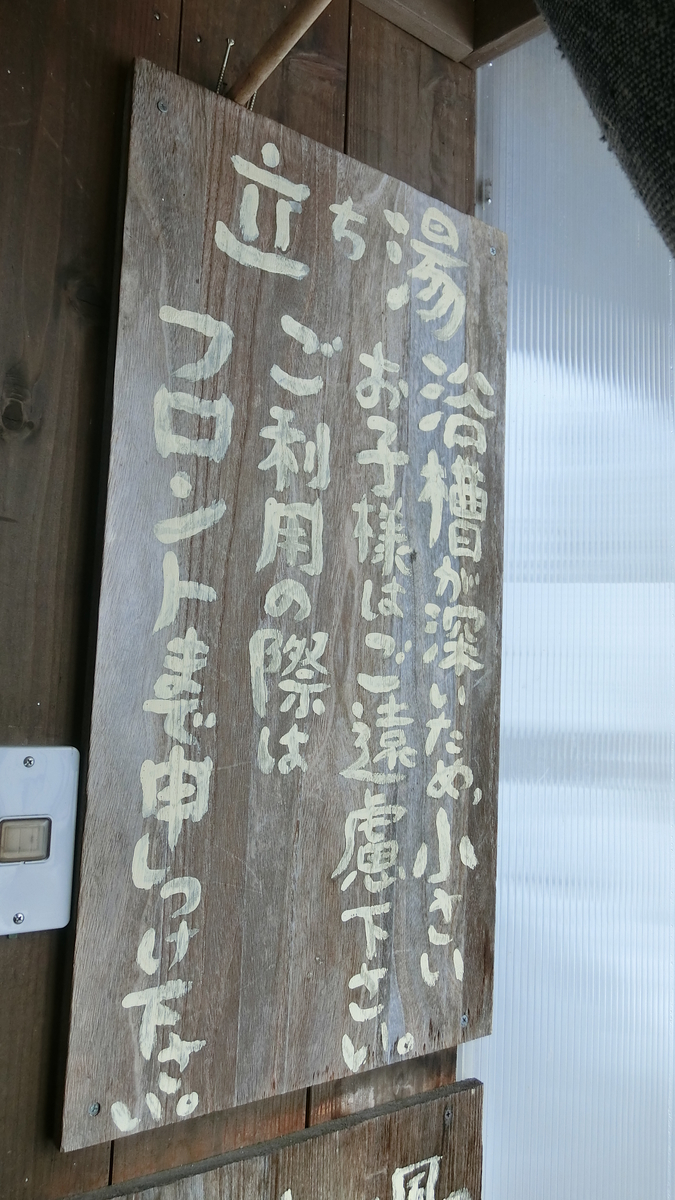 立ち湯
浴槽が深いため、小さい
お子様はご遠慮下さい。
ご利用の際は
フロントまで申しつけ下さい。